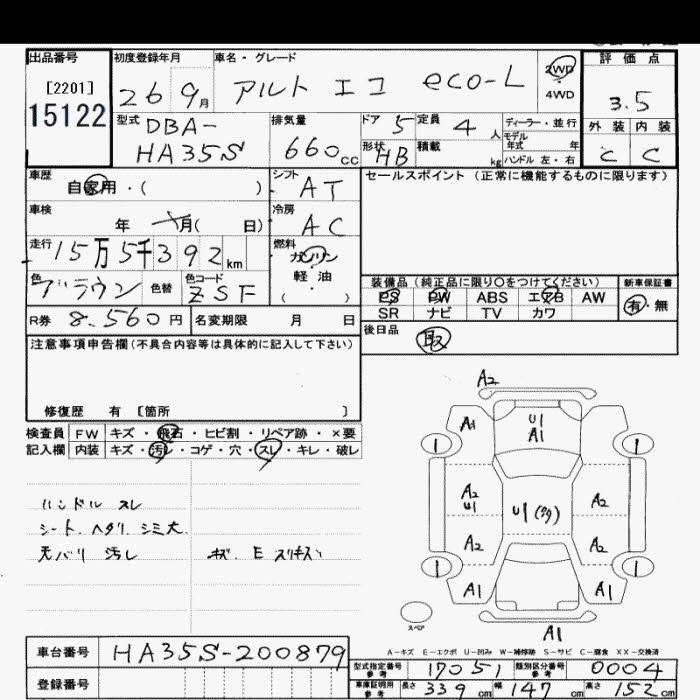 出品番号
[2201]
15122
初度登録年月
26 9月
車名・グレード
アルト エコ eco-L
2WD
4WD
評価点
3.5
外装 内装
C C
型式
DBA-
HA35S
排気量
660cc
ドア 5
定員 4人
形状 HB
積載 kg
ディーラー・並行
モデル
年式 年
ハンドル 左・右
車歴
自家用・( )
シフト
AT
セールスポイント(正常に機能するものに限ります)
車検
年 月( 日)
冷房
AC
走行
15万5千392km
燃料
ガソリン
軽・油
( )
色
ブラウン
色替
色コード
ZSF
装備品(純正品に限り〇をつけてください)
PS PW ABS エアB AW
SR ナビ TV カワ
新車保証書
有・無
R券 8.560円
名変期限 月 日
後日品
取
注意事項申告欄(不具合内容等は具体的に記入して下さい)
修復歴 有 [箇所 ]
検査員
記入欄
FW キズ・飛石・ヒビ割・リペア跡・×要
内装 キズ・汚レ・コゲ・穴・スレ・キレ・破レ
ハンドル スレ
シート ヘタリ シミ大
天バリ 汚レ
A2
A1
U1
A1
1
1
A2
U1
U1(多)
A2
A2
A2
1
1
A1
A1
スペア
A1
A-キズ E-エクボ U-凹み W-補修跡 S-サビ C-腐食 XX-交換済
車台番号
HA35S-200879
登録番号
型式指定番号
参考
17051
類別区分番号
参考
0004
車庫証明用
参考
長さ 339cm 幅 147cm 高さ 152cm